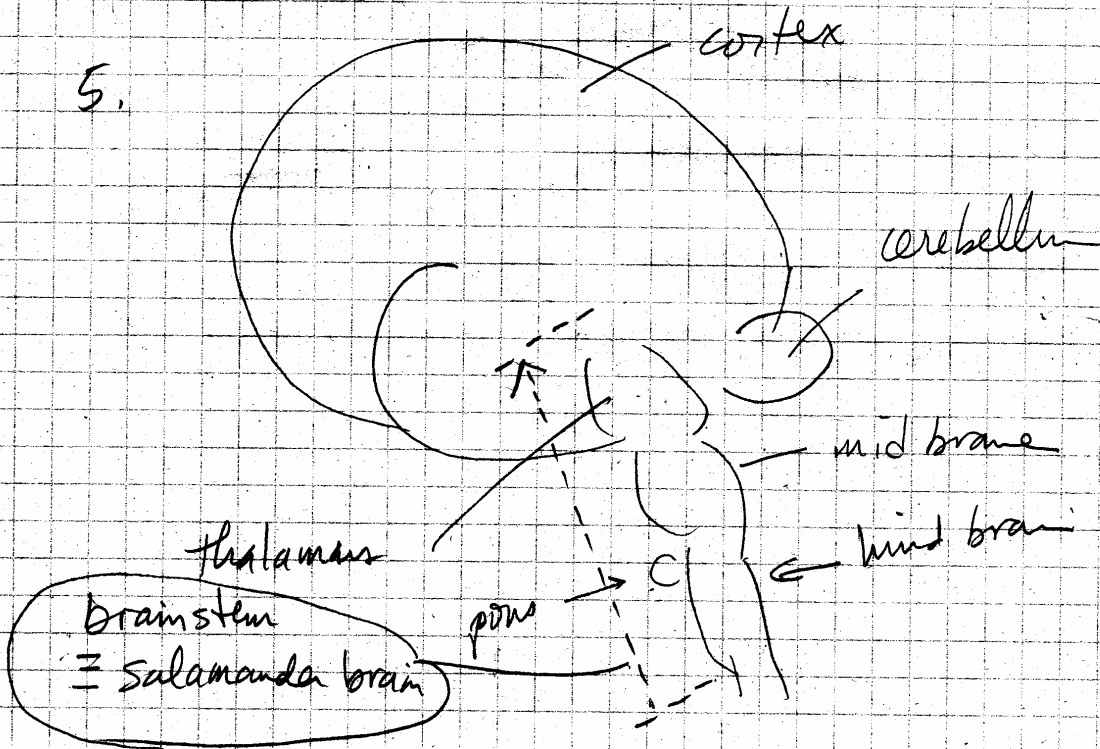 5.
cortex
cerebellum
mid brane
hind brain
thalamus
pons
brainstem
≡ salamander brain